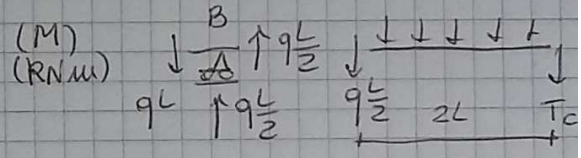 (M) B
(RNM) A q L/2
qL q L/2 q L/2 2L Tc